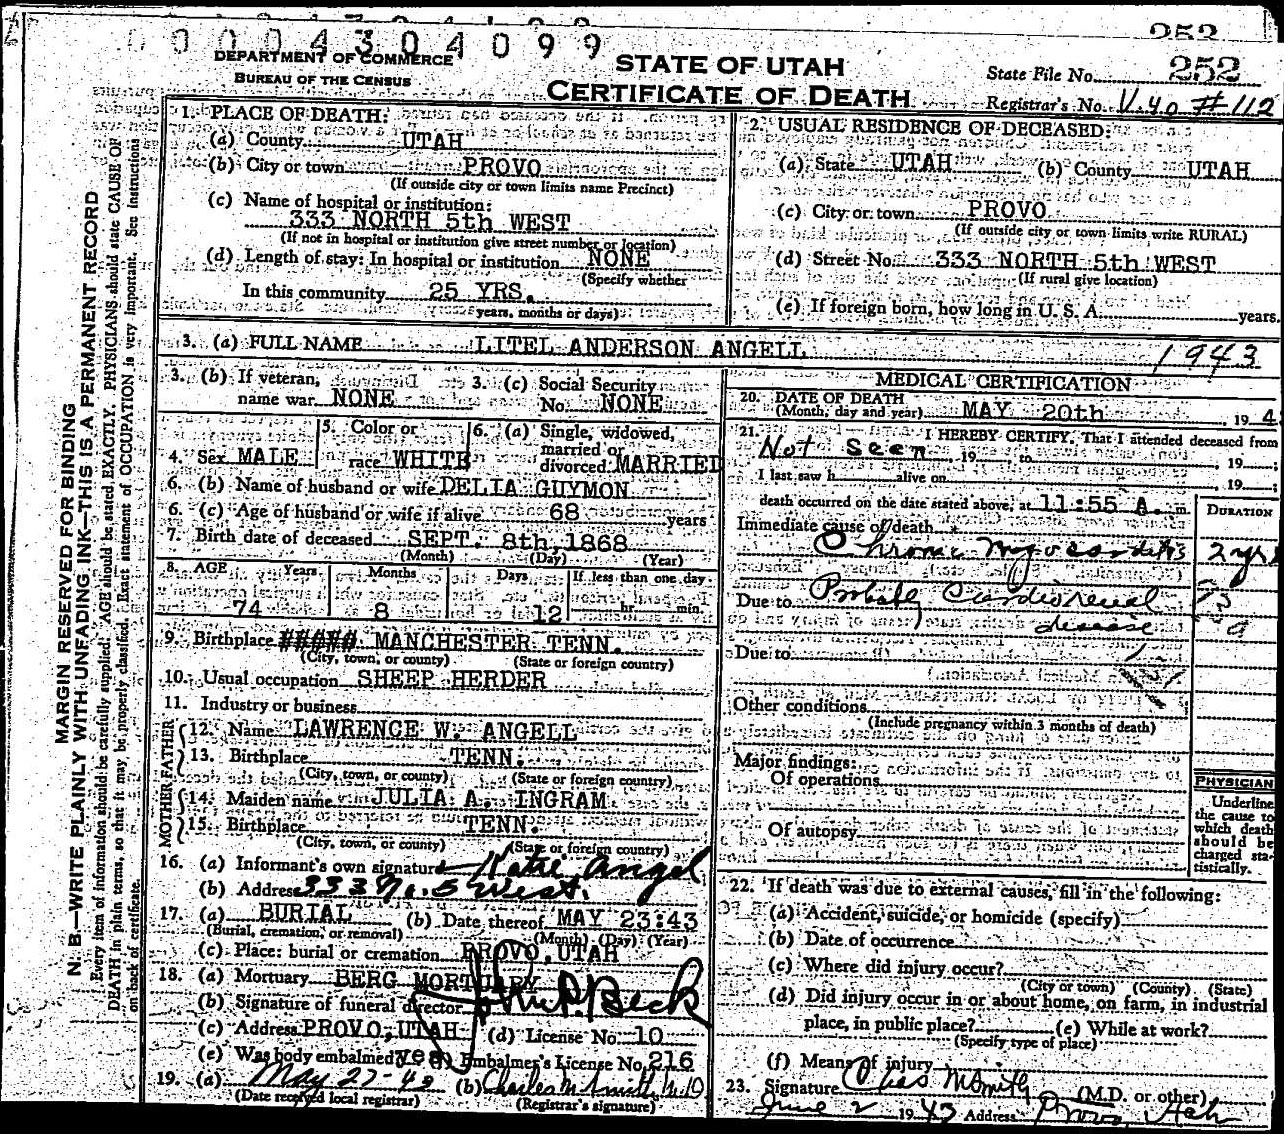 252
0 0 0 0 4 3 0 4 0 9 9
DEPARTMENT OF COMMERCE
BUREAU OF THE CENSUS
STATE OF UTAH
CERTIFICATE OF DEATH
State File No. 252
Registrar's No. V.40 #112
MARGIN RESERVED FOR BINDING
N. B.—WRITE PLAINLY WITH UNFADING INK—THIS IS A PERMANENT RECORD
Every item of information should be carefully supplied. AGE should be stated EXACTLY. PHYSICIANS should state CAUSE OF
DEATH in plain terms, so that it may be properly classified. Exact statement of OCCUPATION is very important. See instructions
on back of certificate.
1. PLACE OF DEATH:
(a) County UTAH
(b) City or town PROVO
(If outside city or town limits name Precinct)
(c) Name of hospital or institution:
333 NORTH 5th WEST
(If not in hospital or institution give street number or location)
(d) Length of stay: In hospital or institution NONE
(Specify whether
In this community 25 YRS.
years, months or days)
2. USUAL RESIDENCE OF DECEASED:
(a) State UTAH (b) County UTAH
(c) City or town PROVO
(If outside city or town limits write RURAL)
(d) Street No. 333 NORTH 5th WEST
(If rural give location)
(e) If foreign born, how long in U. S. A. years.
3. (a) FULL NAME LITEL ANDERSON ANGELL
1943
3. (b) If veteran, name war NONE
3. (c) Social Security No. NONE
4. Sex MALE
5. Color or race WHITE
6. (a) Single, widowed, married or divorced MARRIED
6. (b) Name of husband or wife DELIA GUYMON
6. (c) Age of husband or wife if alive 68 years
7. Birth date of deceased SEPT. 8th, 1868
(Month) (Day) (Year)
8. AGE Years Months Days If less than one day
74 8 12 hr. min.
9. Birthplace ##### MANCHESTER TENN.
(City, town, or county) (State or foreign country)
10. Usual occupation SHEEP HERDER
11. Industry or business
FATHER
12. Name LAWRENCE W. ANGELL
13. Birthplace TENN.
(City, town, or county) (State or foreign country)
MOTHER
14. Maiden name JULIA A. INGRAM
15. Birthplace TENN.
(City, town, or county) (State or foreign country)
16. (a) Informant's own signature Katie Angel
(b) Address 333 No. 5 West.
17. (a) BURIAL (b) Date thereof MAY 23:43
(Burial, cremation, or removal) (Month) (Day) (Year)
(c) Place: burial or cremation PROVO, UTAH
18. (a) Mortuary BERG MORTUARY
(b) Signature of funeral director John P. Beck
(c) Address PROVO, UTAH (d) License No. 10
(e) Was body embalmed? yes (f) Embalmer's License No. 216
19. (a) May 27-43 (b) Charles M Smith, M.D
(Date received local registrar) (Registrar's signature)
MEDICAL CERTIFICATION
20. DATE OF DEATH
(Month, day and year) MAY 20th 194
21. I HEREBY CERTIFY, That I attended deceased from
Not seen, 19 to , 19 ;
I last saw h alive on , 19 ;
death occurred on the date stated above, at 11:55 A. m.
DURATION
Immediate cause of death
Chronic Myocarditis 2 yrs
Due to Probably Cardiorenal
disease
Due to
131
Other conditions
(Include pregnancy within 3 months of death)
Major findings:
Of operations
Of autopsy
PHYSICIAN
Underline
the cause to
which death
should be
charged sta-
tistically.
22. If death was due to external causes, fill in the following:
(a) Accident, suicide, or homicide (specify)
(b) Date of occurrence
(c) Where did injury occur?
(City or town) (County) (State)
(d) Did injury occur in or about home, on farm, in industrial
place, in public place? (e) While at work?
(Specify type of place)
(f) Means of injury
23. Signature Chas M Smith (M.D. or other)
June 2 1943 Address Provo, Utah